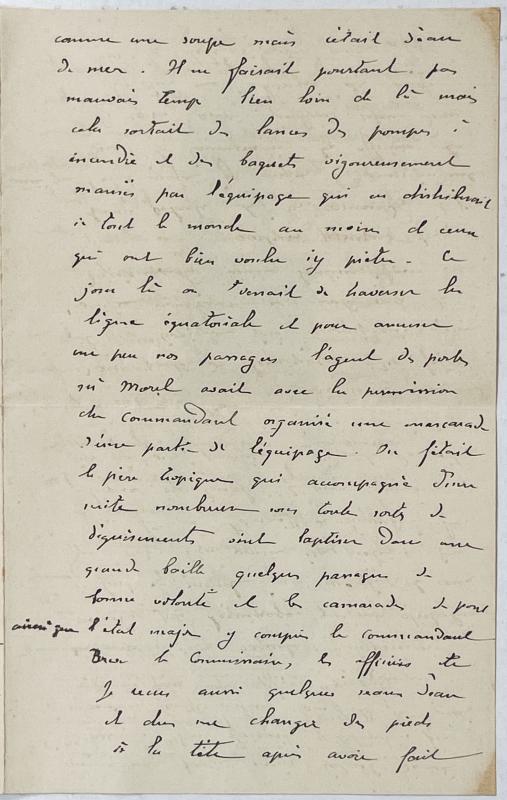 comme une soupe mais c'était d'eau
de mer. Il ne faisait pourtant pas
mauvais temp bien loin de là mais
cela sortait des lances des pompes à
incendie et des baquets vigoureusement
maniés par l'équipage qui en distribuait
à tout le monde au moins et ceux
qui ont bien voulu s'y prêter. Ce
jour là on venait de traverser la
ligne équatoriale et pour amuser
un peu nos passagers l'agent des postes
Morel avait avec la permission
du Commandant organisé une mascarade
d'une partie de l'équipage. On fêtait
le père tropique qui accompagné d'une
suite nombreuse sous toute sorte de
déguisements vint baptiser dans une
grande baille quelques passagers de
bonne volonté et les camarades de pont
ainsi que l'état major y compris le commandant
le Commissaire, les officiers etc
Je reçus aussi quelques seaux d'eau
et dus me changer des pieds
à la tête après avoir fait